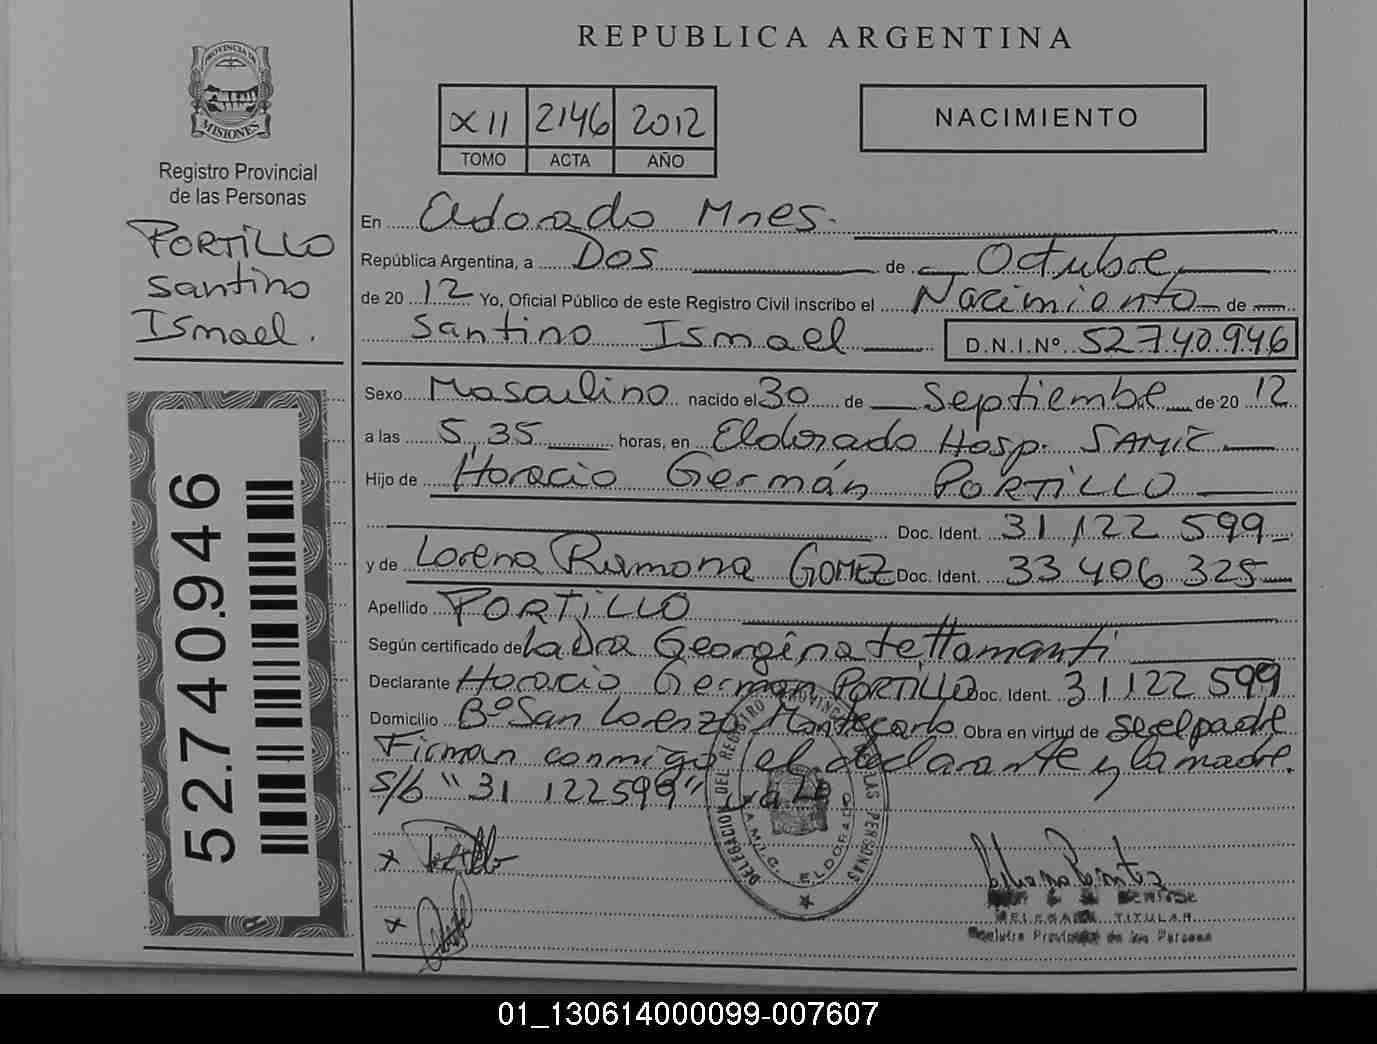 REPUBLICA ARGENTINA
PROVINCIA DE
MISIONES
Registro Provincial
de las Personas
PORTILLO
Santino
Ismael.
52.740.946
XII 2146 2012
TOMO ACTA AÑO
NACIMIENTO
En Eldorado Mnes.
República Argentina, a Dos de Octubre
de 20 12 Yo, Oficial Público de este Registro Civil inscribo el Nacimiento de
Santino Ismael D.N.I.Nº 52740.946
Sexo Masculino nacido el 30 de Septiembre de 20 12
a las 5,35 horas, en Eldorado Hosp. SAMIC
Hijo de Horacio Germán PORTILLO
Doc. Ident. 31 122 599
y de Lorena Ramona GOMEZ Doc. Ident. 33 406 325
Apellido PORTILLO
Según certificado de La Dra Georgina Tettamanti
Declarante Horacio German PORTILLO Doc. Ident. 31122 599
Domicilio Bº San Lorenzo Montecarlo Obra en virtud de ser el padre
Firman conmigo el declarante y la madre.
S/b "31 122599" vale
x Portillo
x
DELEGACION DEL REGISTRO PROVINCIAL DE LAS PERSONAS
S.A.M.I.C. ELDORADO
DELEGADA TITULAR
Registro Provincial de las Personas
01_130614000099-007607